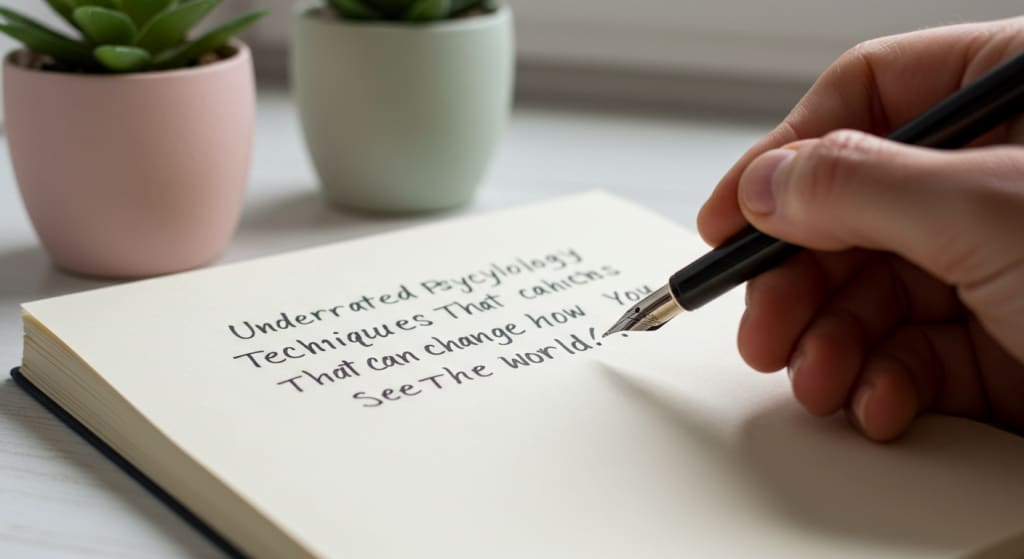 Underrated Psycylology
Techniques That cahichs
That can change how You
See The world!